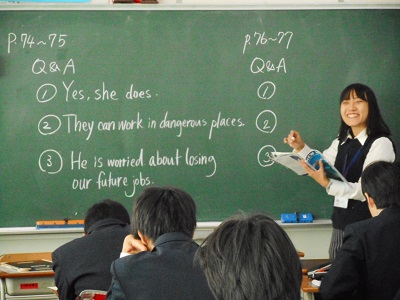 P.74～75
Q&A
① Yes, she does.
② They can work in dangerous places.
③ He is worried about losing
our future jobs.
P.76～77
Q&A
①
②
③